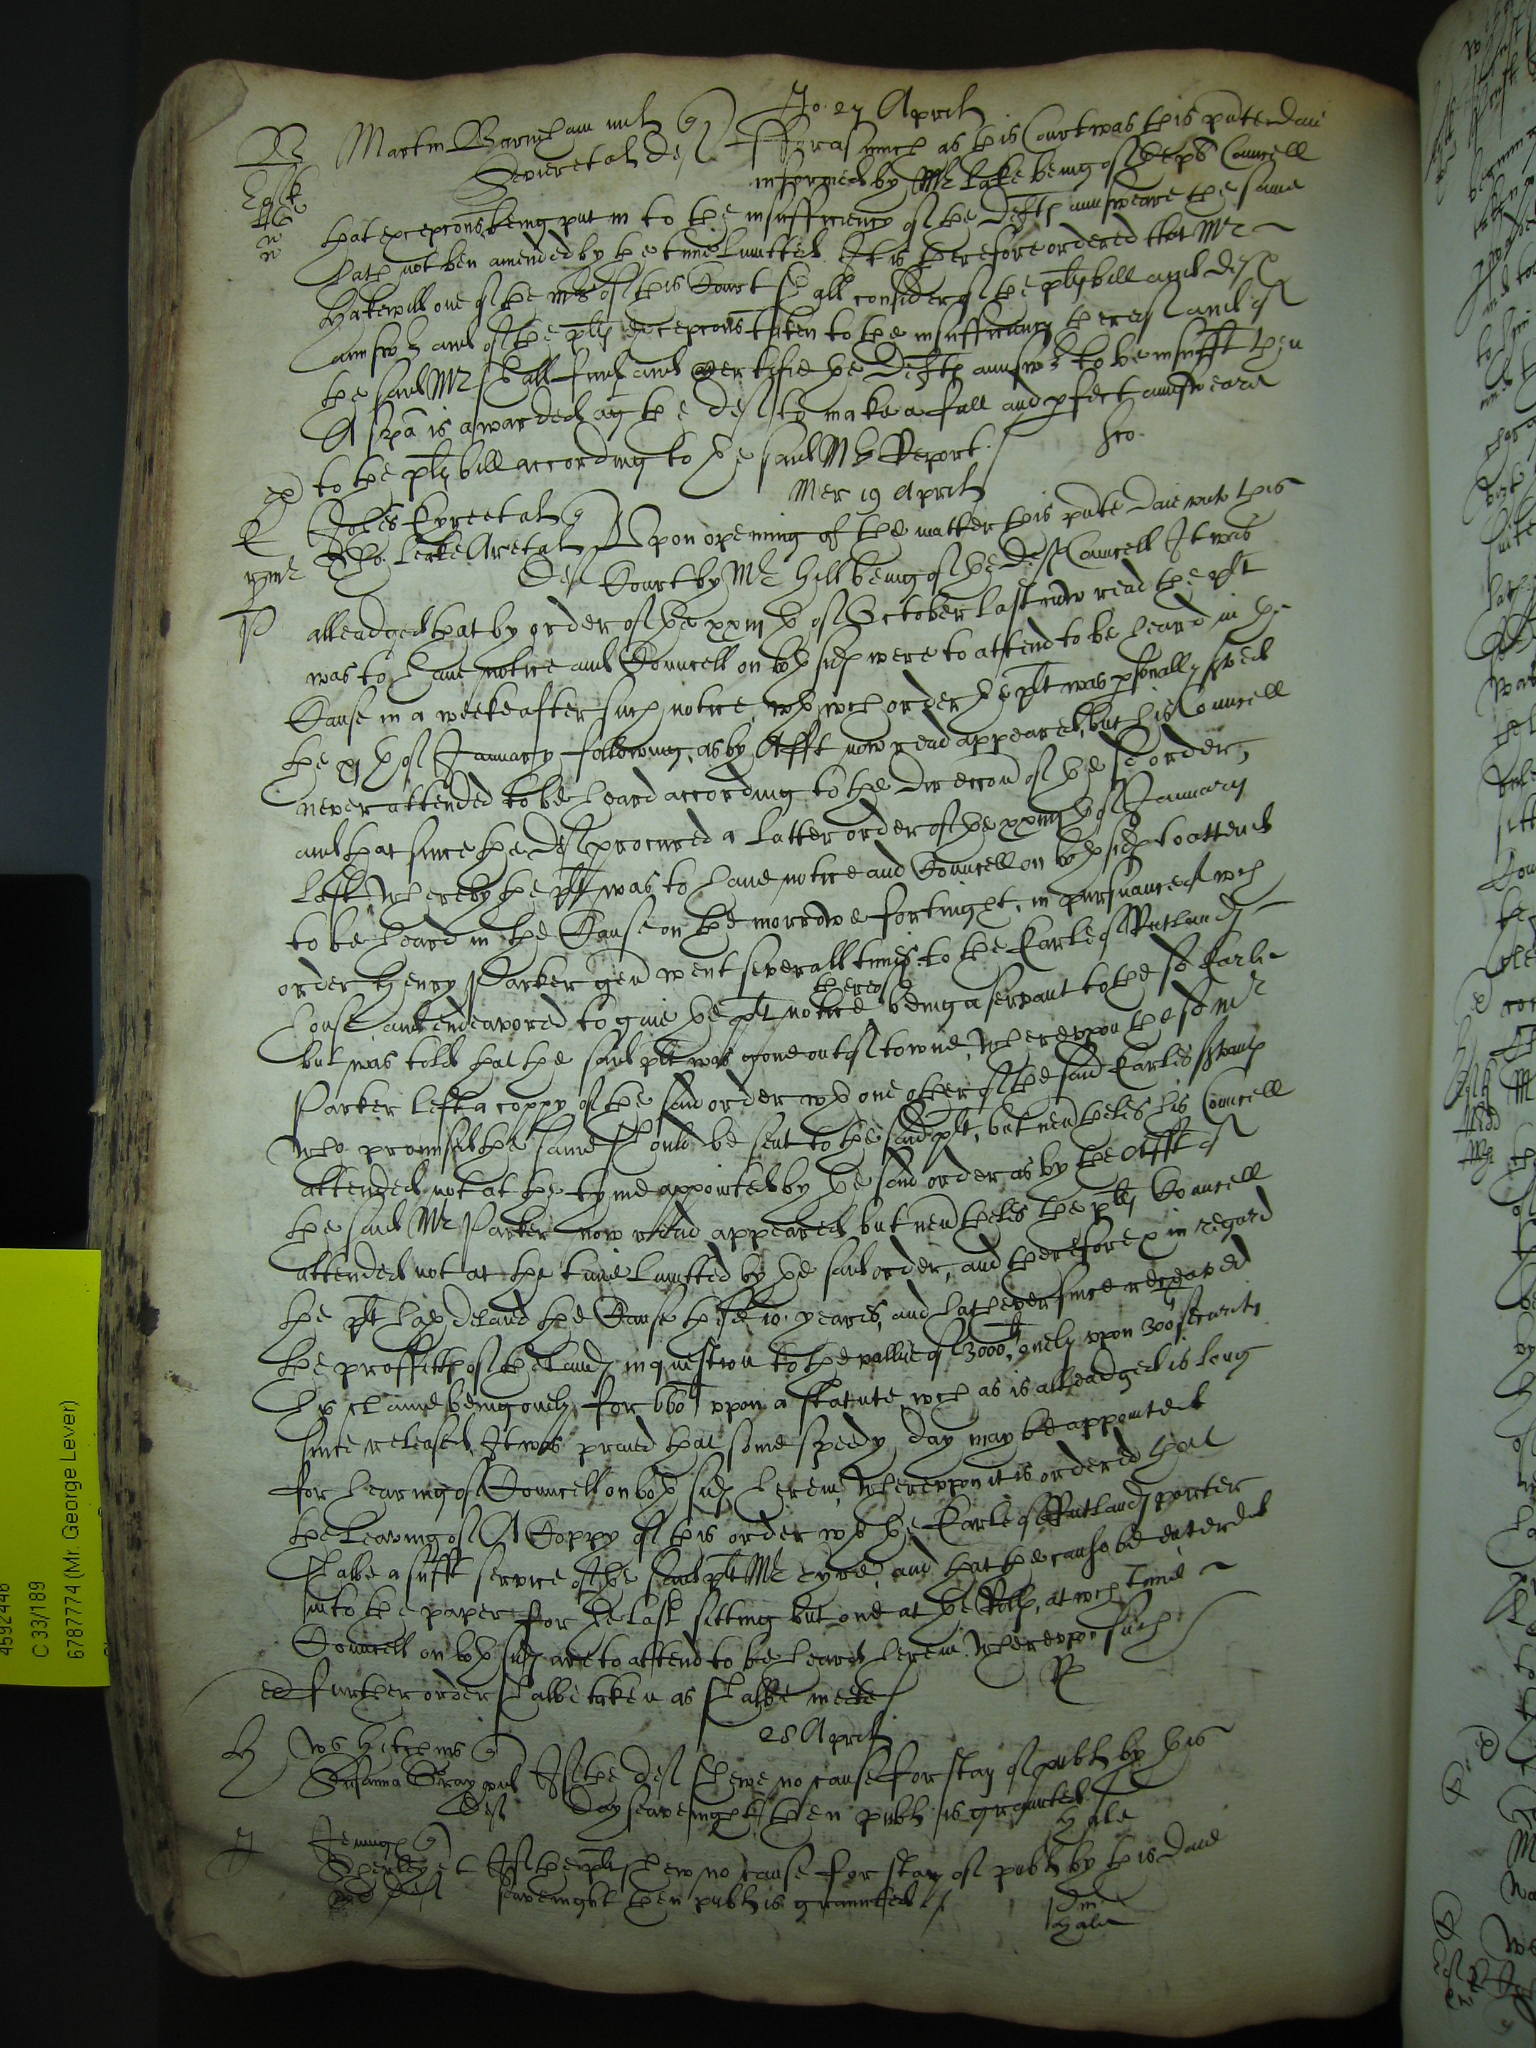 Jo. 27 Aprilis
B Martin Barnham mil q Forasmuch as this Court was this pnte daie
et al def informed by Mr Lake being of the pl Councell
that excepcons being put in to the insufficiency of the Defts aunsweare the same
hath not ben amended by the time limitted. It is therefore ordered that Mr
Hakewill one of the mrs of this Court shall consider of the pltes bill and def
answ and of the pltes excepcons taken to the insufficiency thereof and if
the said Mr shall find and certifie the Defts answ to be insufft then
A spa is awarded ag the def to make a full and pfect aunsweare
to the pltes bill according to the said Mr Report
Mer 19 Aprilis
Johes Eyre et al q Upon opening of the matter this pnte daie unto this
Tho. Leeke Ar et al def Court by Mr Hill being of the def Councell It was
P alleadged that by order of the xxiijth of October last now read the plt
was to have notice and Councell on both sides were to attend to be heard in the
Cause in a weeke after such notice, wth wch order the plt was psonally served
the xjth of January following, as by Afft now read appeared, but his Councell
never attended to be heard according to the direccon of the sd order,
and that since the def procured a latter order of the xxiijth of January
last, whereby the plt was to have notice and Councell on both sides to attend
to be heard in the Cause on the morrowe fortnight, in pursuance of wch
order Henry Parker gen went severall times to the Earle of Rutlands
house and endeavored to give the plt notice thereof being a servant to the sd Earle
but was told that the said plt was gone out of towne, whereupon the sd mr
Parker left a coppy of the said order wth one other of the said Earles servants
who promised the same should be sent to the said plt, but nevtheles his Councell
attended not at the tyme appointed by the said order as by the Afft of
the said Mr Parker now read appeared but nevtheles the pltes Councell
attended not at the time limitted by the said order, and therefore in regard
the plt hath delaid the Cause theis 10 years, and hath ever since receaved
the proffitts of the lands in question to the vallue of 3000li, onely upon 300li security
his claime being onely for 660li upon a statute, wch as is alleadged is long
since released, It was praied that some speedy day may be appointed
for hearing of Councell on both sides herein, Whereupon it is ordered that
the leaving of A Coppy of this order wth the Earle of Rutlands porter
shalbe a sufft service of the said plt Mr Eyre, and that the cause be entered
into the paper for the last sitting but one at the Rolls, at wch tyme
Councell on both sides are to attend to be heard herein Whereupon such
further order shalbe taken as shalbe meete
28 Aprilis
H Wo Hitchins q If the def shewe no cause for stay of publ by this
Susanna Gray def day seavenight then publ is graunted
Hale
J Jenings q If the plt shew no cause for stay of publ by this daie
et def seavenight then publ is graunted
Hale
4592446
C 33/189
6787774 (Mr. George Lever)